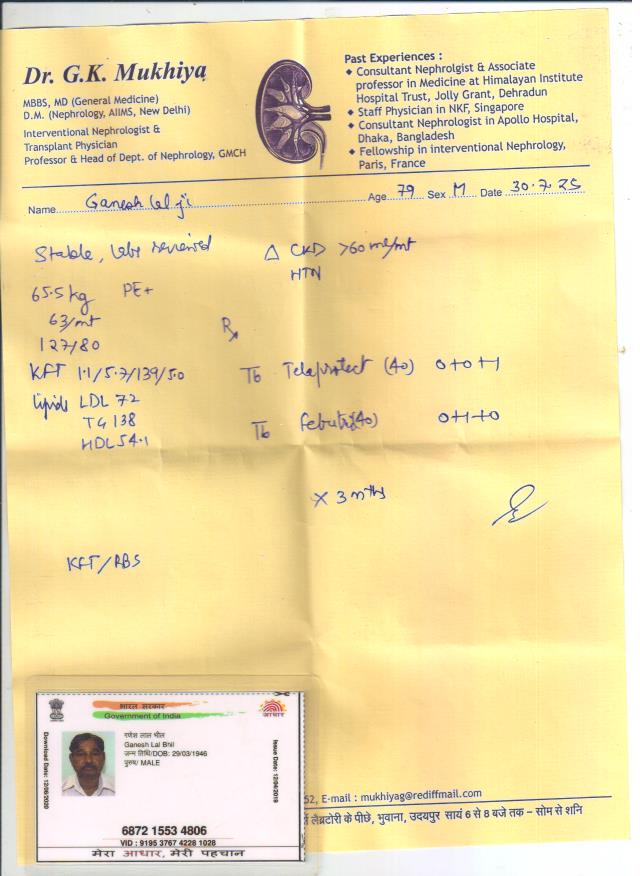 Dr. G.K. Mukhiya
MBBS, MD (General Medicine)
D.M. (Nephrology, AIIMS, New Delhi)
Interventional Nephrologist &
Transplant Physician
Professor & Head of Dept. of Nephrology, GMCH
Past Experiences :
Consultant Nephrolgist & Associate
professor in Medicine at Himalayan Institute
Hospital Trust, Jolly Grant, Dehradun
Staff Physician in NKF, Singapore
Consultant Nephrologist in Apollo Hospital,
Dhaka, Bangladesh
Fellowship in interventional Nephrology,
Paris, France
Name Ganesh lal ji Age 79 Sex M Date 30.7.25
Stable, labs reviewed
Δ CKD >60 ml/mt
HTN
65.5 kg PE+
63/mt
127/80
Rx
KFT 1.1/5.7/139/5.0
Tb Teleprotect (40) 0+0+1
lipids LDL 72
TG 138
HDL 54.1
Tb (40) 0+1+0
x 3 mths
KFT/RBS
भारत सरकार
Government of India
आधार
गणेश लाल भील
Ganesh Lal Bhil
जन्म तिथि/DOB: 29/03/1946
पुरुष/ MALE
Issue Date: 12/04/2019
6872 1553 4806
VID : 9195 3767 4228 1028
मेरा आधार, मेरी पहचान
52, E-mail : mukhiyag@rediffmail.com
लैब्रटोरी के पीछे, भुवाना, उदयपुर सायं 6 से 8 बजे तक – सोम से शनि